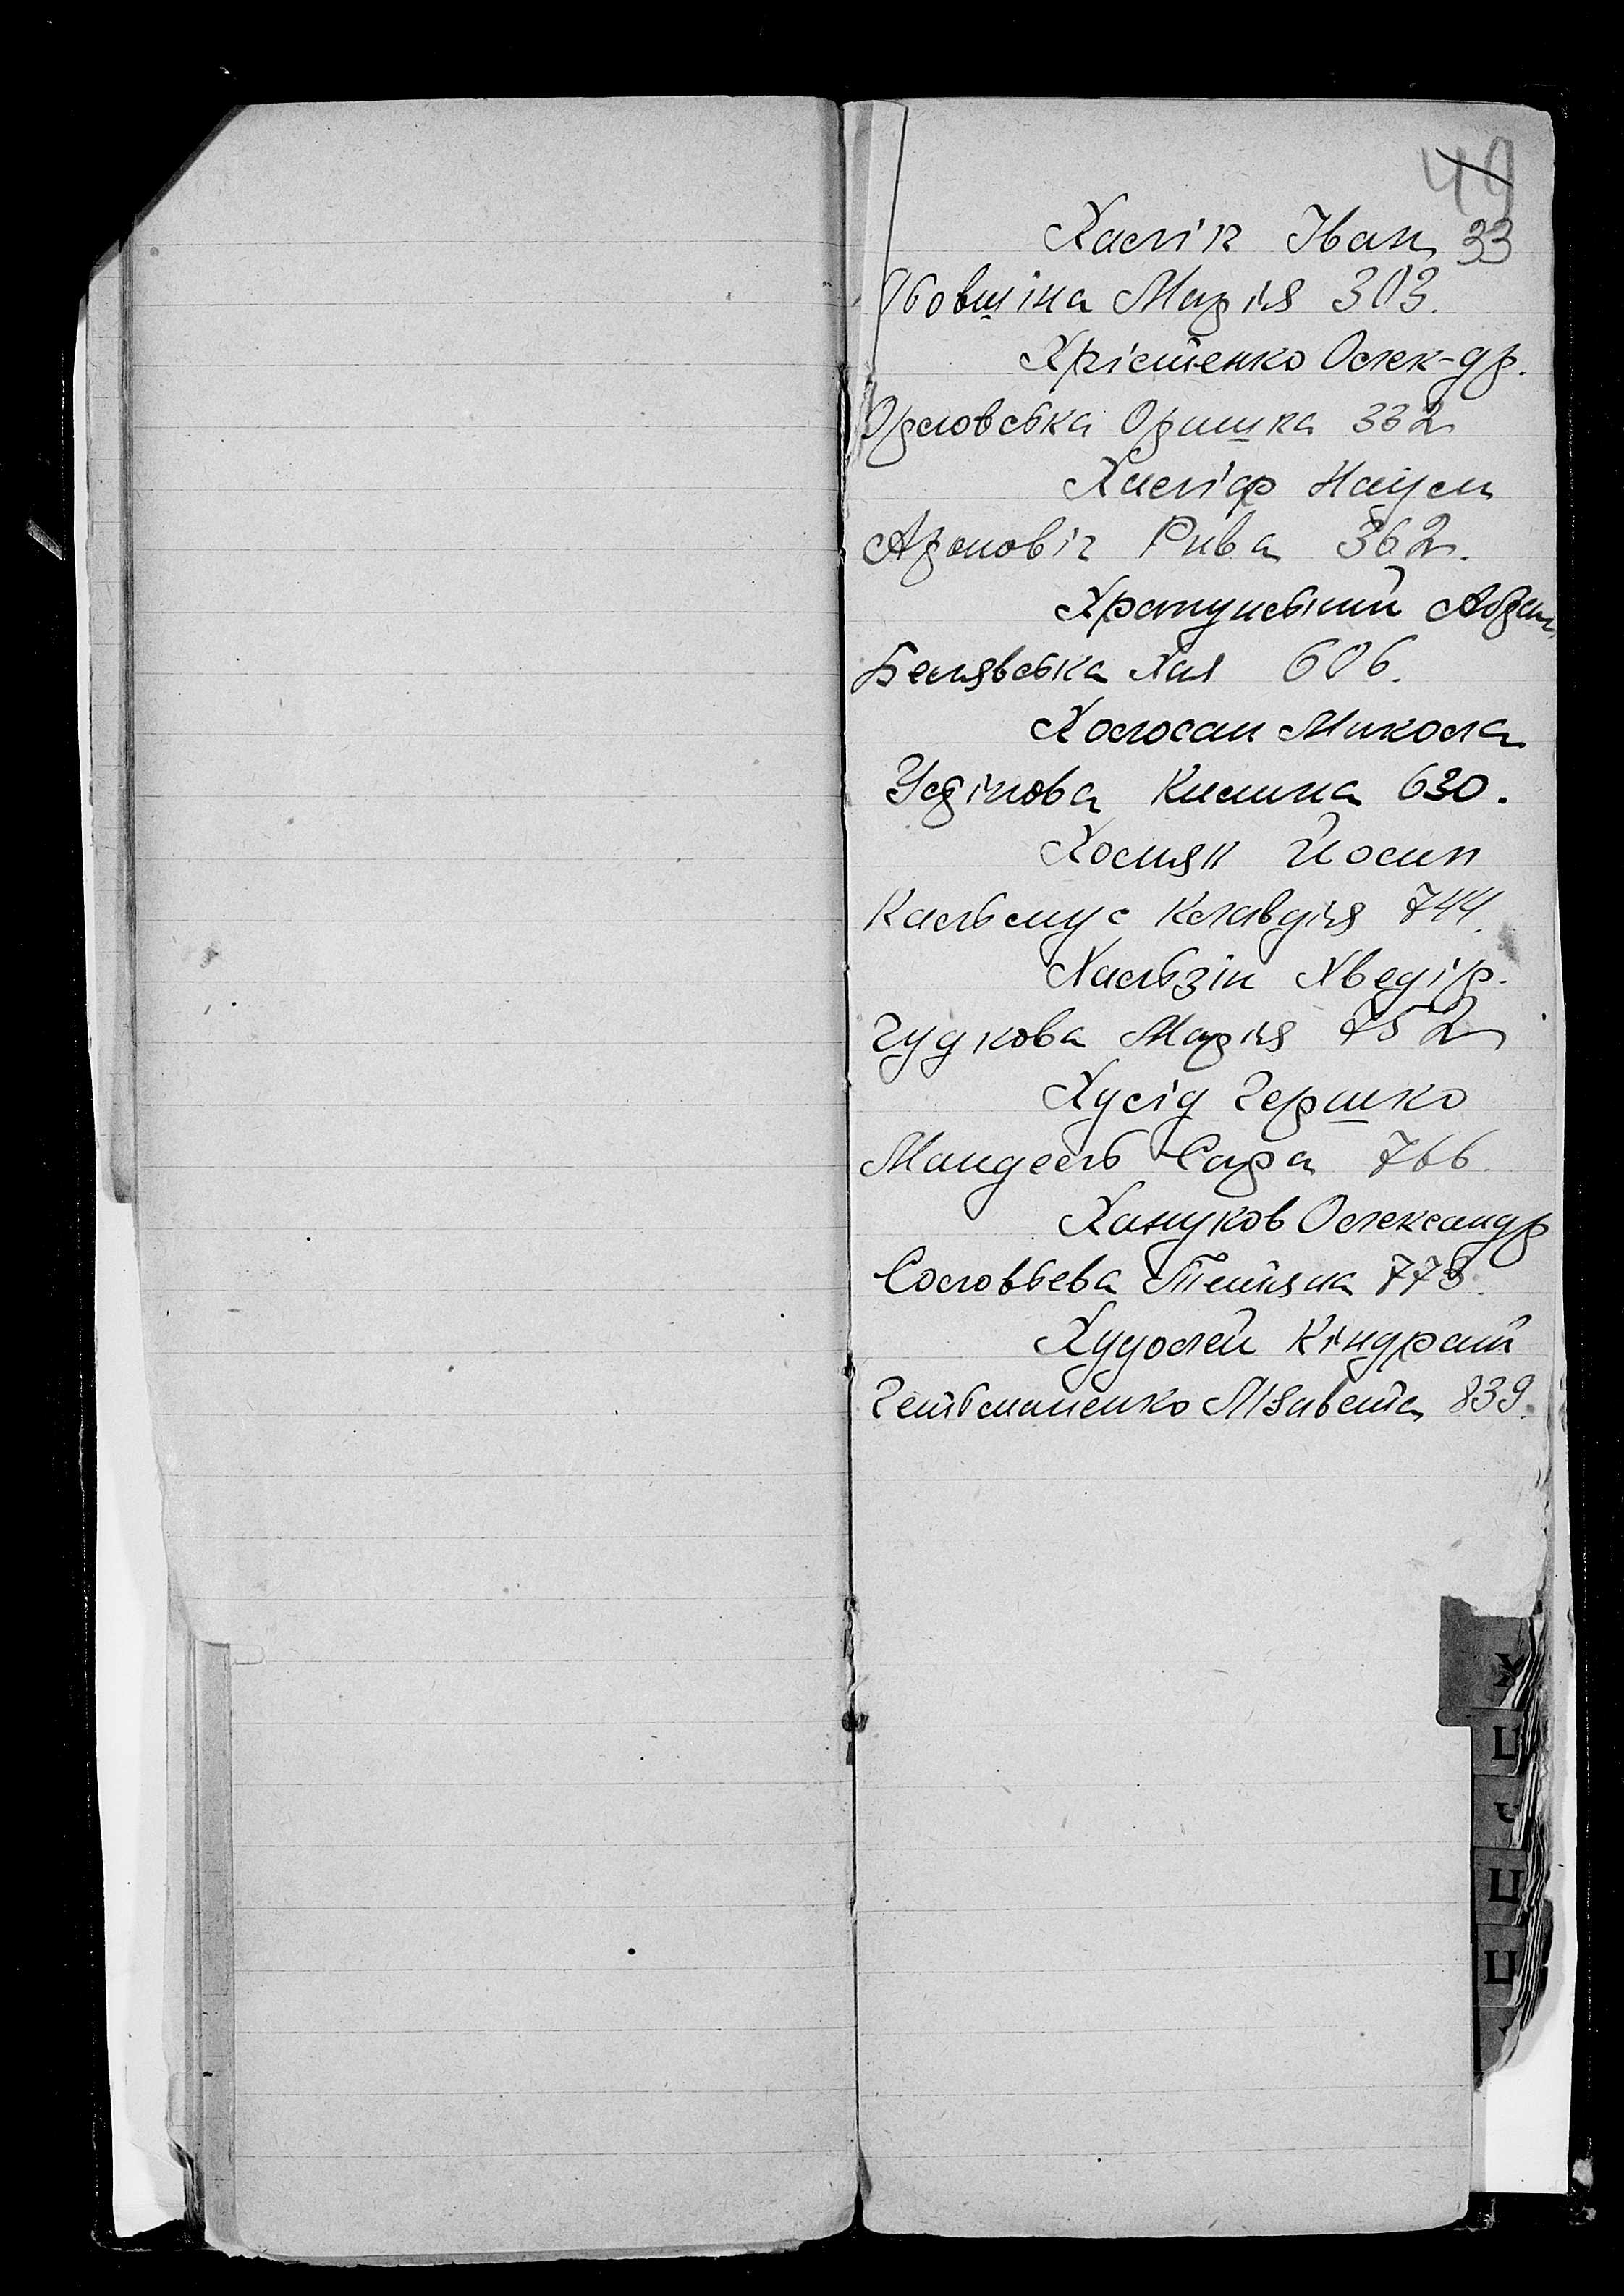 49
Халік Іван 33
Вовшіна Марія 303.
Хрістенко Олек-др.
Орловська Оришка 332
Хаєліф Наум
Аронович Рива 362.
Храпунський Абрам
Белявська Хая 606.
Холосан Микола
Усдінова Килина 630.
Хосияк Йосип
Кальмус Клавдія 744.
Хальзін Хведір.
Гудкова Марія 752
Хусід Гершко
Мандель Сара 766.
Хануков Олександр
Соловьева Тетяна 778.
Худолей Кіндрат
Гетьманенко Лізавета 839.
Х
Ц
Ч